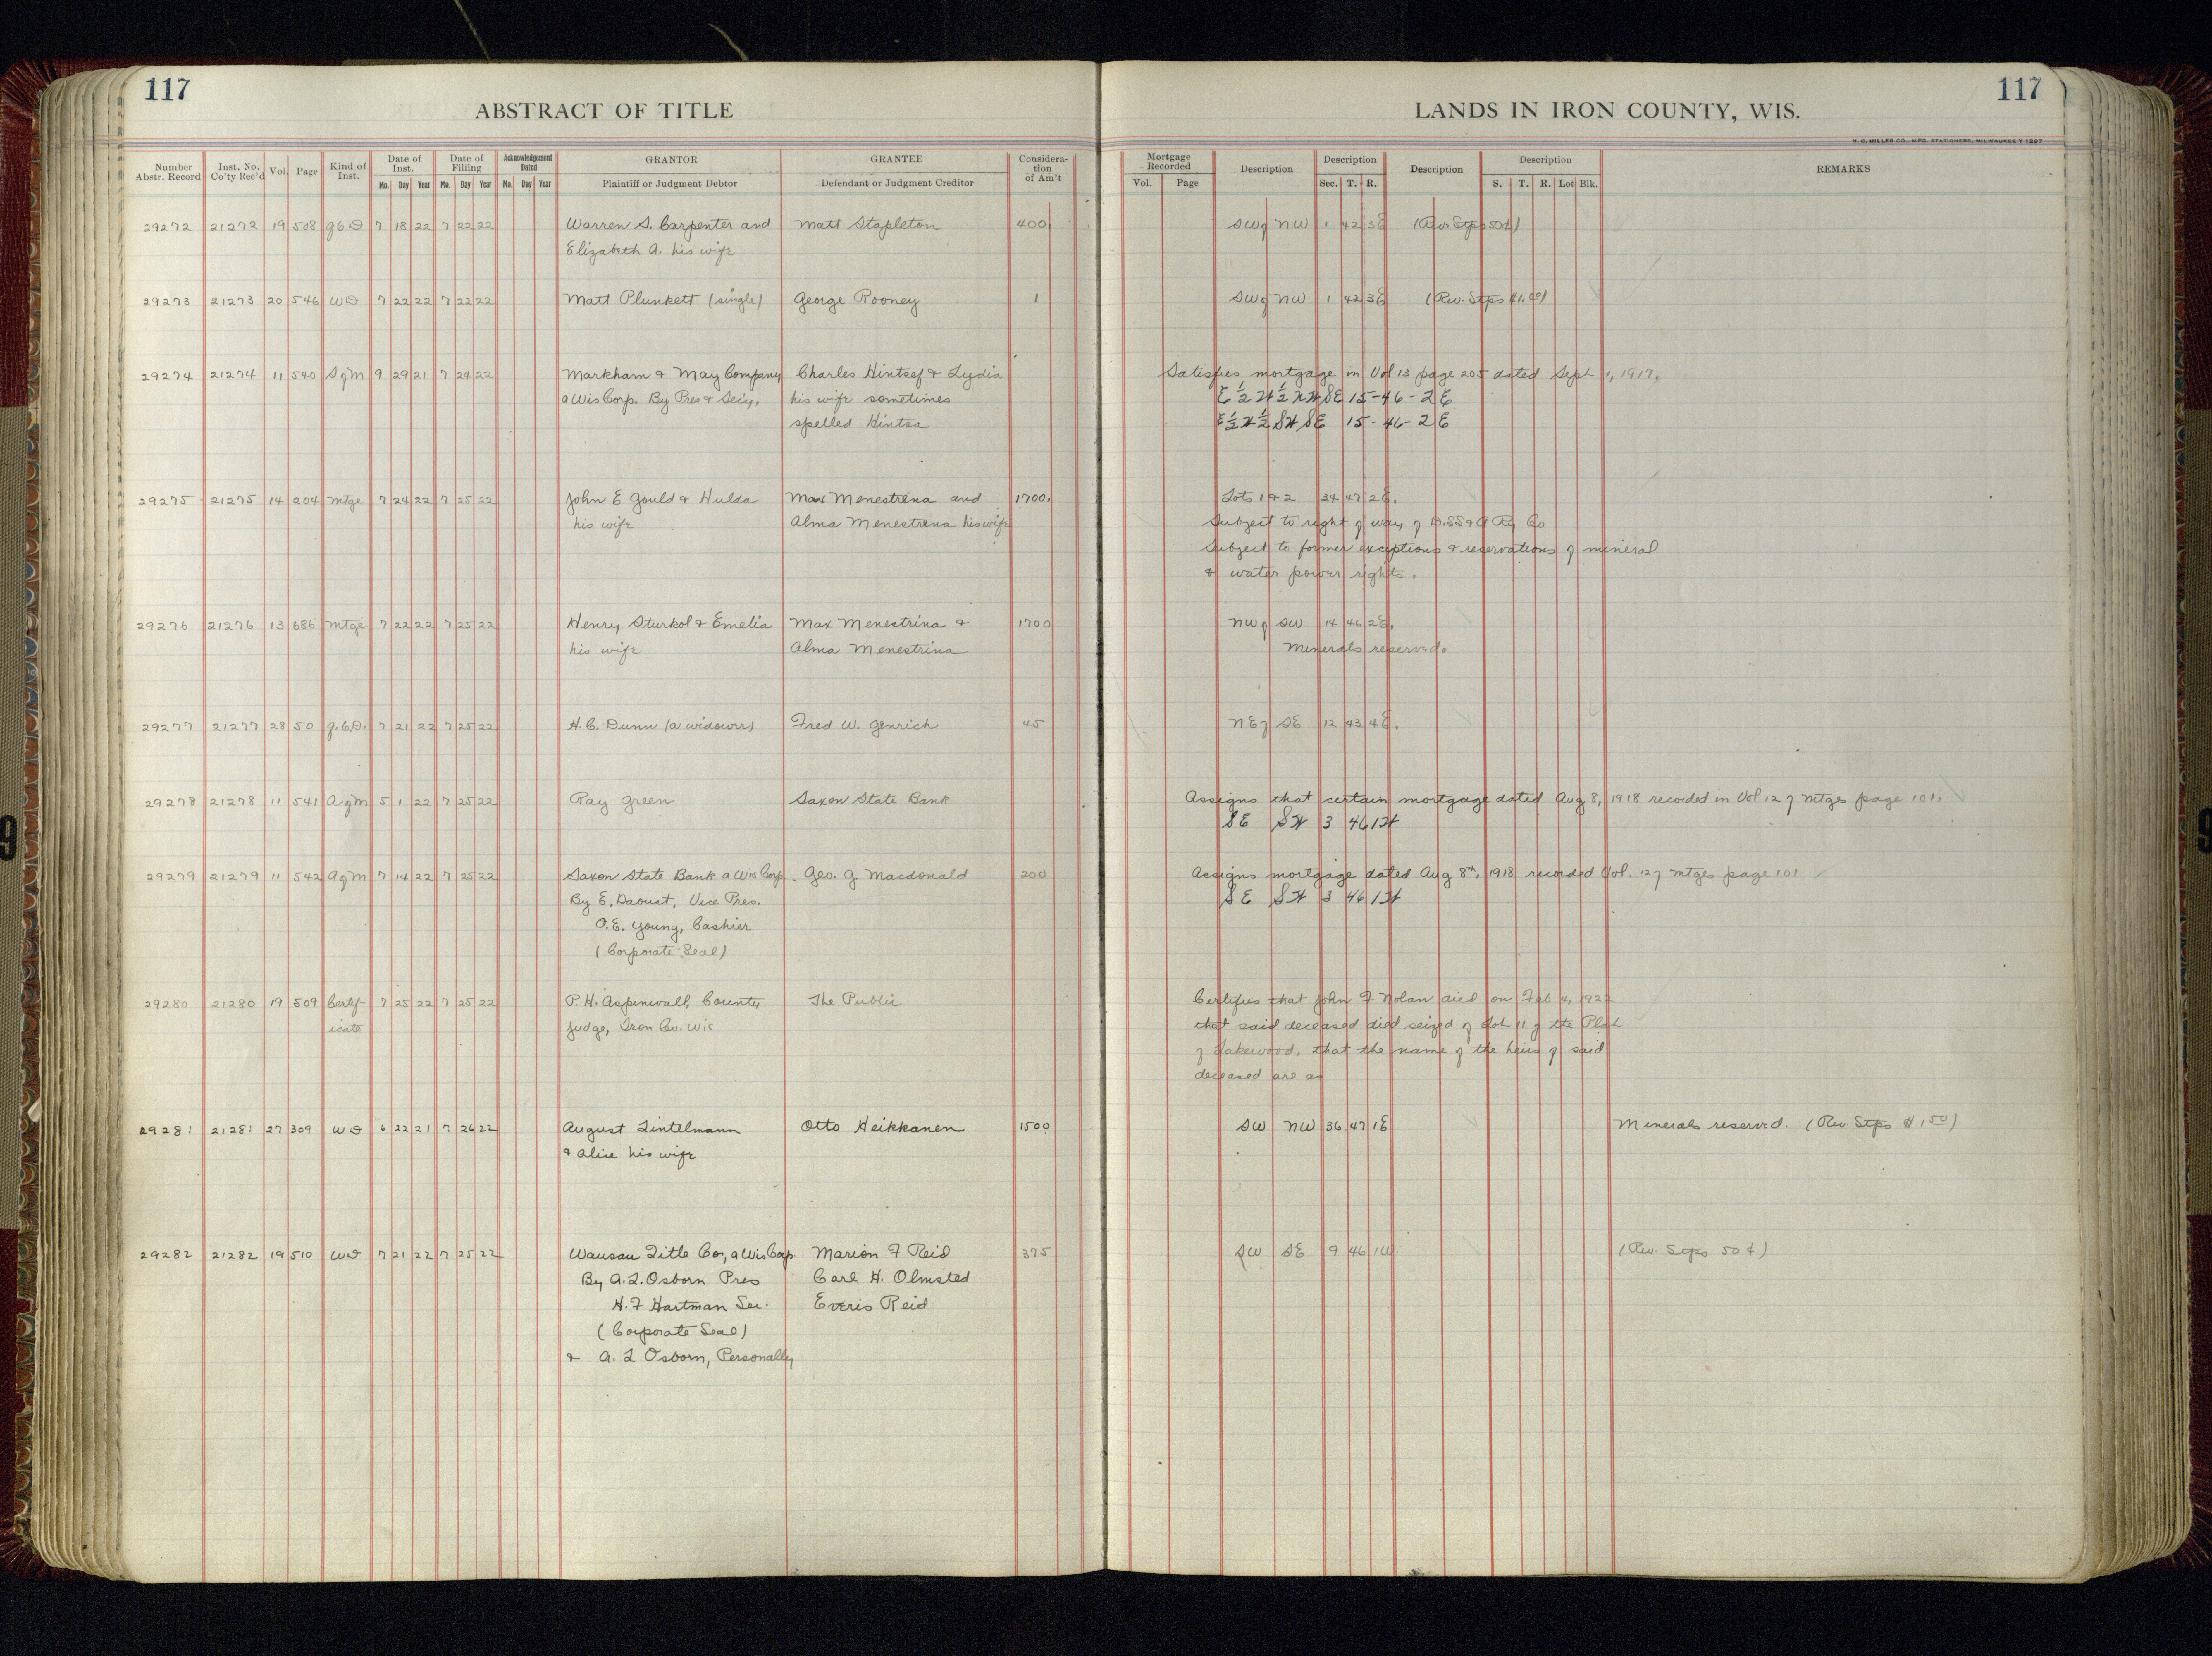 117
117
ABSTRACT OF TITLE
LANDS IN IRON COUNTY, WIS.
H. C. MILLER CO., MFG. STATIONERS, MILWAUKEE
Number Abstr. Record | Inst. No. Co'ty Rec'd | Vol. | Page | Kind of Inst. | Date of Inst. Mo. Day Year | Date of Filling Mo. Day Year | Acknowledgement Dated Mo. Day Year | GRANTOR Plaintiff or Judgment Debtor | GRANTEE Defendant or Judgment Creditor | Consideration of Am't
Mortgage Recorded Vol. Page | Description | Description Sec. T. R. | Description | Description S. T. R. Lot Blk. | REMARKS
29272 21272 19 508 q C D 7 18 22 7 22 22 Warren S. Carpenter and Matt Stapleton 400 SW of NW 1 42 3E (Rev. Stps 50¢)
Elizabeth A. his wife
29273 21273 20 546 WD 7 22 22 7 22 22 Matt Plunkett (single) George Rooney 1 SW of NW 1 42 3E (Rev. Stps $1.00)
29274 21274 11 540 S of M 9 29 21 7 24 22 Markham & May Company Charles Hintsef & Lydia Satisfies mortgage in Vol 13 page 205 dated Sept 1, 1917.
a Wis Corp. By Pres & Sec'y. his wife sometimes E ½ W ½ NW SE 15-46-2E
spelled Hintsa E ½ W ½ SW SE 15-46-2E
29275 21275 14 204 Mtge 7 24 22 7 25 22 John E Gould & Hulda Max Menestrena and 1700 Lots 1 & 2 34 47 2E.
his wife Alma Menestrena his wife Subject to right of way of D.SS & A Ry Co
Subject to former exceptions & reservations of mineral
& water power rights.
29276 21276 13 686 Mtge 7 22 22 7 25 22 Henry Sturkol & Emelia Max Menestrina & 1700 NW of SW 14 46 2E.
his wife Alma Menestrina Minerals reserved.
29277 21277 28 50 q.C.D. 7 21 22 7 25 22 H. C. Dunn (a widower) Fred W. Genrich 45 NE of SE 12 43 4E.
29278 21278 11 541 A of M 5 1 22 7 25 22 Ray Green Saxon State Bank Assigns that certain mortgage dated Aug 8, 1918 recorded in Vol 12 of Mtges page 101.
SE SW 3 46 1W
29279 21279 11 542 A of M 7 14 22 7 25 22 Saxon State Bank a Wis Corp. Geo. G Macdonald 200 Assigns mortgage dated Aug 8th, 1918 recorded Vol. 12 of Mtges page 101
By E. Daoust, Vice Pres. SE SW 3 46 1W
O.E. Young, Cashier
(Corporate Seal)
29280 21280 19 509 Certif- 7 25 22 7 25 22 P. H. Aspinwall, County The Public Certifies that John F Nolan died on Feb 4, 1922
icate Judge, Iron Co. Wis that said deceased died seized of Lot 11 of the Plat
of Lakewood, that the name of the heirs of said
deceased are as
29281 21281 27 309 WD 6 22 21 7 26 22 August Lintelmann Otto Heikkanen 1500 SW NW 36 47 1E Minerals reserved. (Rev. Stps $1.50)
& Alice his wife
29282 21282 19 510 WD 7 21 22 7 25 22 Wausau Title Co, a Wis Corp. Marion F Reid 375 SW SE 9 46 1W. (Rev. Stps 50¢)
By A. L. Osborn Pres Carl H. Olmsted
H. F Hartman Sec. Everis Reid
(Corporate Seal)
& A. L Osborn, Personally